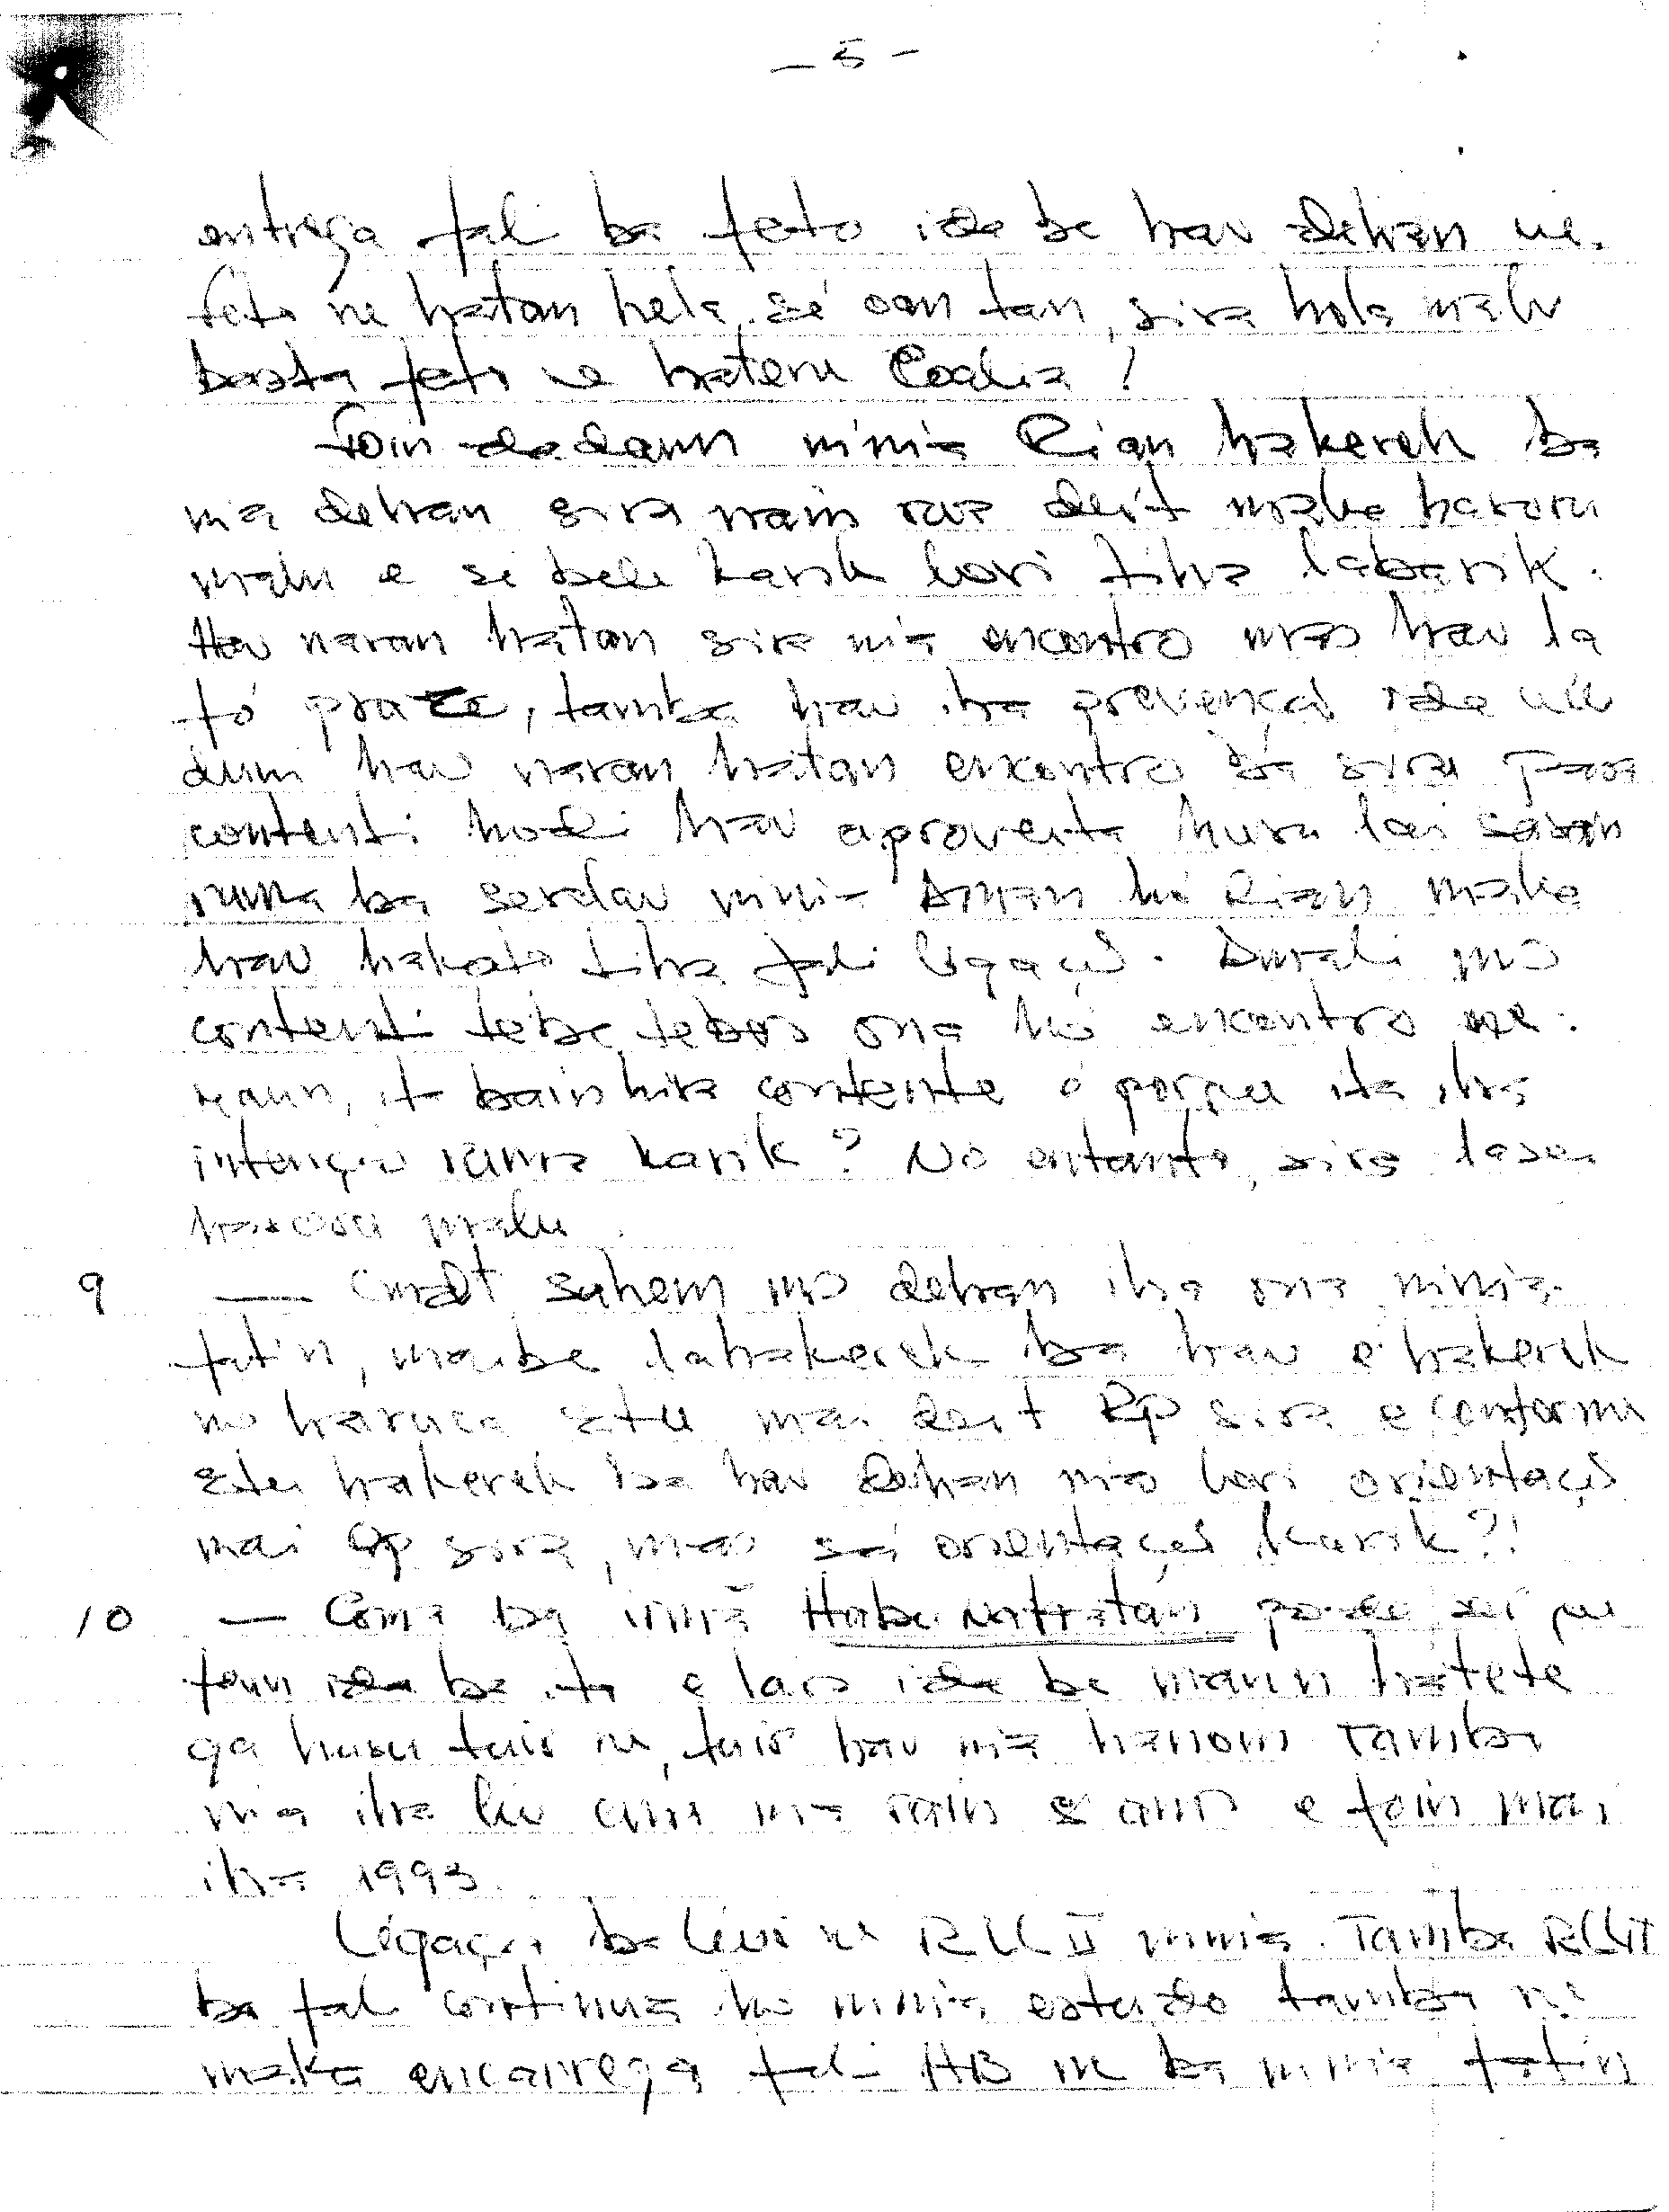 - 5 -
entrega fali ba feto ida be hau dehan ne.
feto ne hatan hela, sé oan tan, sira hola malu
basta feto ne hateru Coalia!
foin dadaun ninia Rian hakerek ba
nia dehan sira nain rua deit make hasoru
malu e se bele karik lori tiha labarik.
Hau naran hatan sira nia encontro mas hau la
tó praze, tamba hau iha prevençaõ ida ulu
dum hau naran hatan encontro ba sira
contenti hodi hau aproveita husu lai
ruma ba serdau ninia Aman hó Rian make
hau hakato tiha fali ligaçaõ. Durali mo
contenti tebe tebes ona hó encontro ne.
maun, it bainhira contente é porque ita iha
intençaõ ruma karik? No entanto, sira
hasoru malu.
9 — Cmdt Sahem mo dehan iha ona ninia
fatin, maibe la hakerek ba hau e hakerek
mo haruca atu mai deit Rp sira e conforme
atu hakerek ba hau dehan mo lori orientaçaõ
mai Rp sira, mas sá orientaçaõ karik?!
10 — Coma ba irmã Habu Natratan
foun ida be ita e laos ida be maun hatete
ga husu tuir ne, tuir hau nia hanoin Tamba
nia iha liu ema nia rain 2 anos e foin mai
iha 1993.
Ligaçaõ ba liur ne RLL II ninia. Tamba RLLII
ba fali continua ho ninia estudo tamba ne
maka encarrega fali AB ne ba ninia fatin